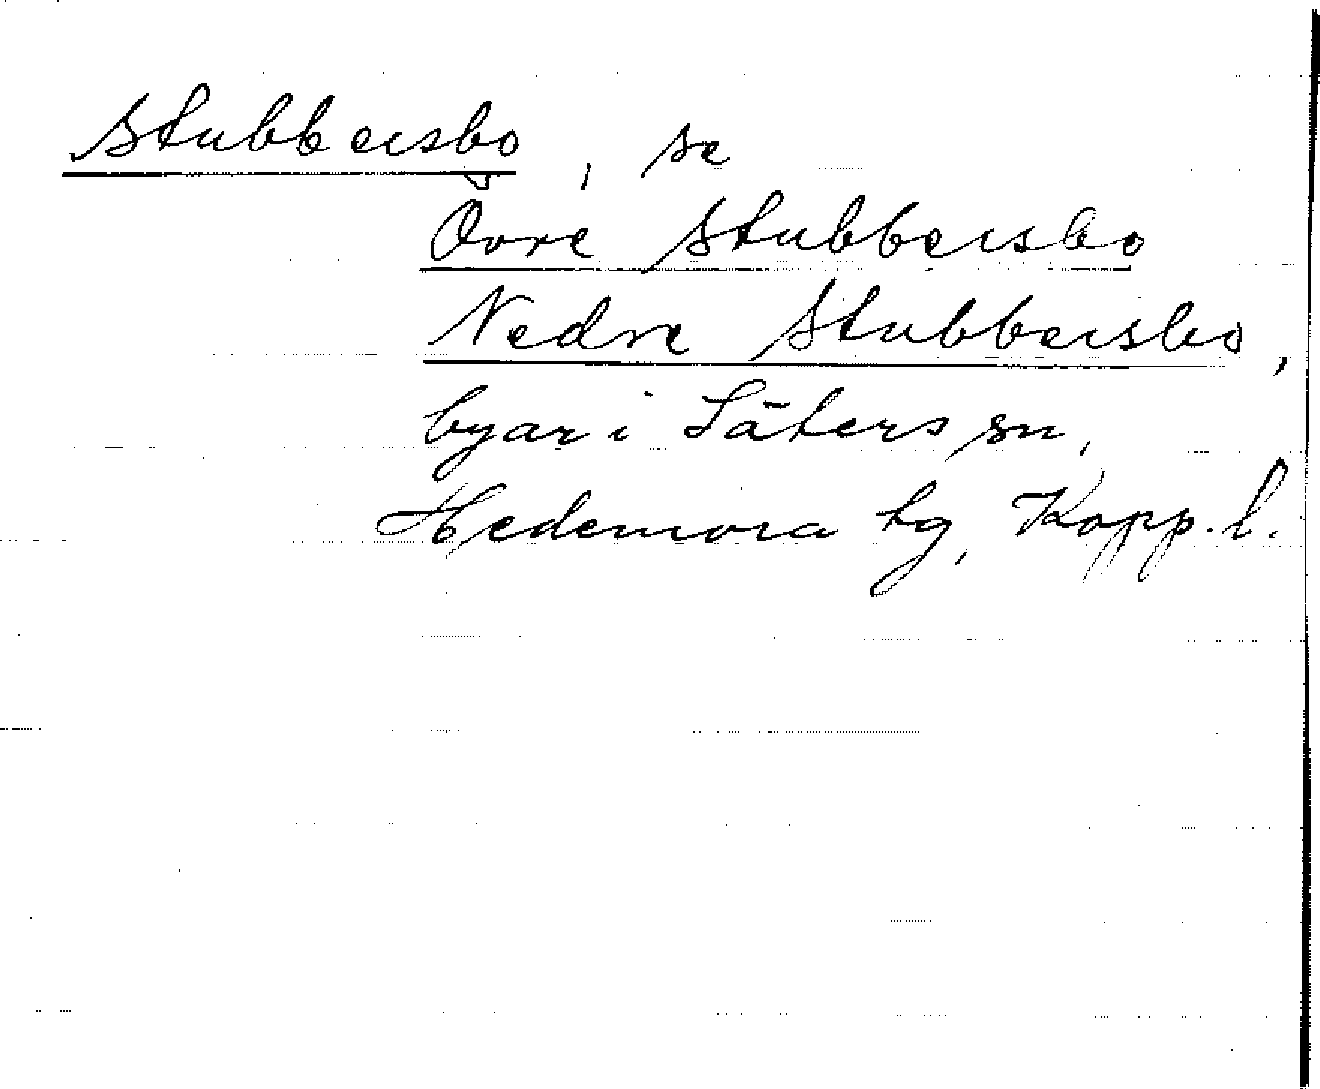 Stubbersbo, se
Övre Stubbersbo
Nedre Stubbersbo,
byar i Säters sn,
Hedemora tg, Kopp. l.